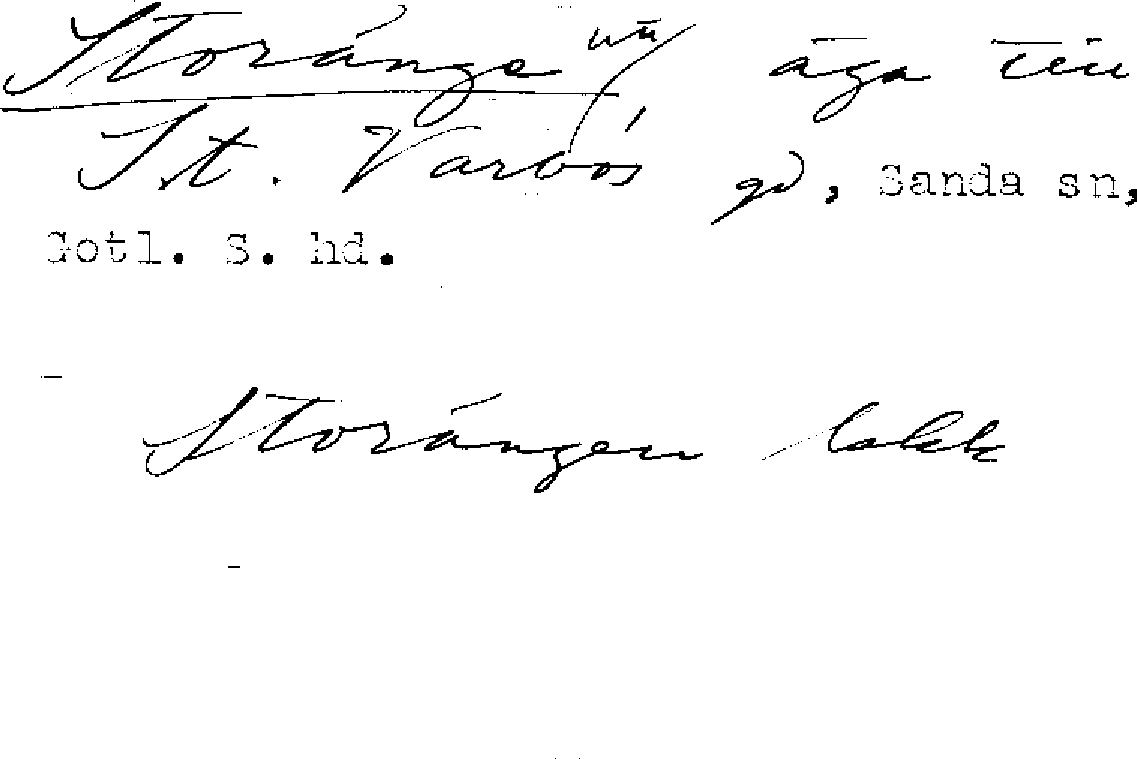 Storänge äga till
St. Varbos gd, Sanda sn,
Gotl. S. hd.
Storängen